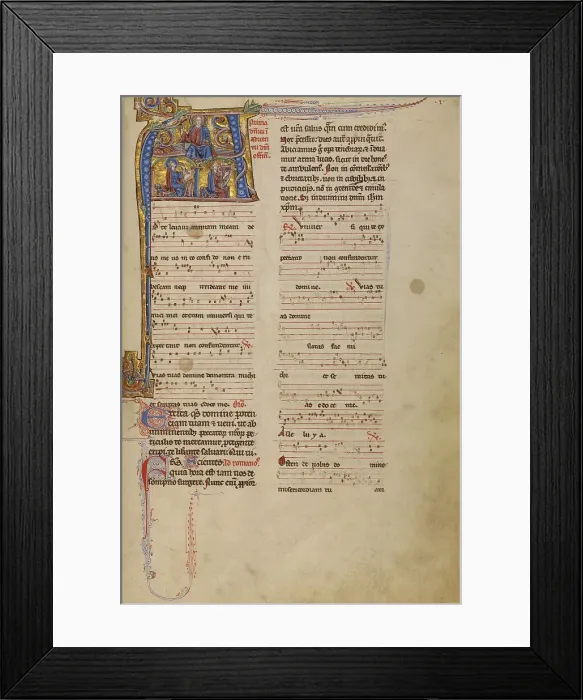 D te levavi animam meam de
us me us in te confi do non e ru
bescam neqȝ irrideant me ini
mici mei etenim universi qui te
expectant non confundentur.
Vias tuas domine demonstra michi
et semitas tuas edoce me.
Excita qs domine poten
tiam tuam et veni. ut ab
periculis te mereamur protegente
eripi. te liberante salvari. Qui vi.
Scientes
quia hora est iam nos de
sompno surgere. Nunc enim propior
est nra salus qm cum credidimꝰ.
Nox precessit. dies autem appropinquavit.
Abiciamus ergo opera tenebrarum. et indua
mur arma lucis. sicut in die hones
te ambulemꝰ. Non in comessationibꝰ
et ebrietatibꝰ. non in cubilibꝰ et in
pudicitiis. non in contentione et emula
tione. Sed induimini dnm ihm
xpm.
Universi qui te ex
pectant non confundentur
domine. Vias tu
as domine
notas fac mi
chi et se mitas tu
as edoce me.
Alle lu y a.
Osten de nobis do mine
misericordiam tu am